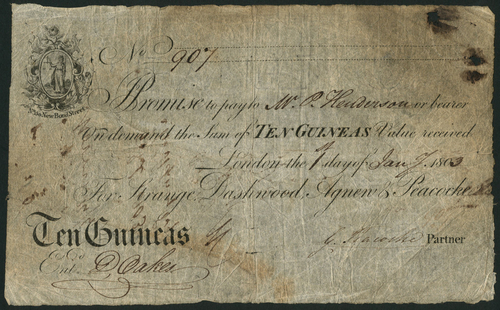 No. 907
New Bond Street
I Promise to pay to Mr. P. Henderson or bearer
On demand the Sum of TEN GUINEAS Value received
London the day of Jany. 1803
For Strange, Dashwood, Agnew & Peacocke
Ten Guineas
Peacocke Partner
Entd. D Oakes